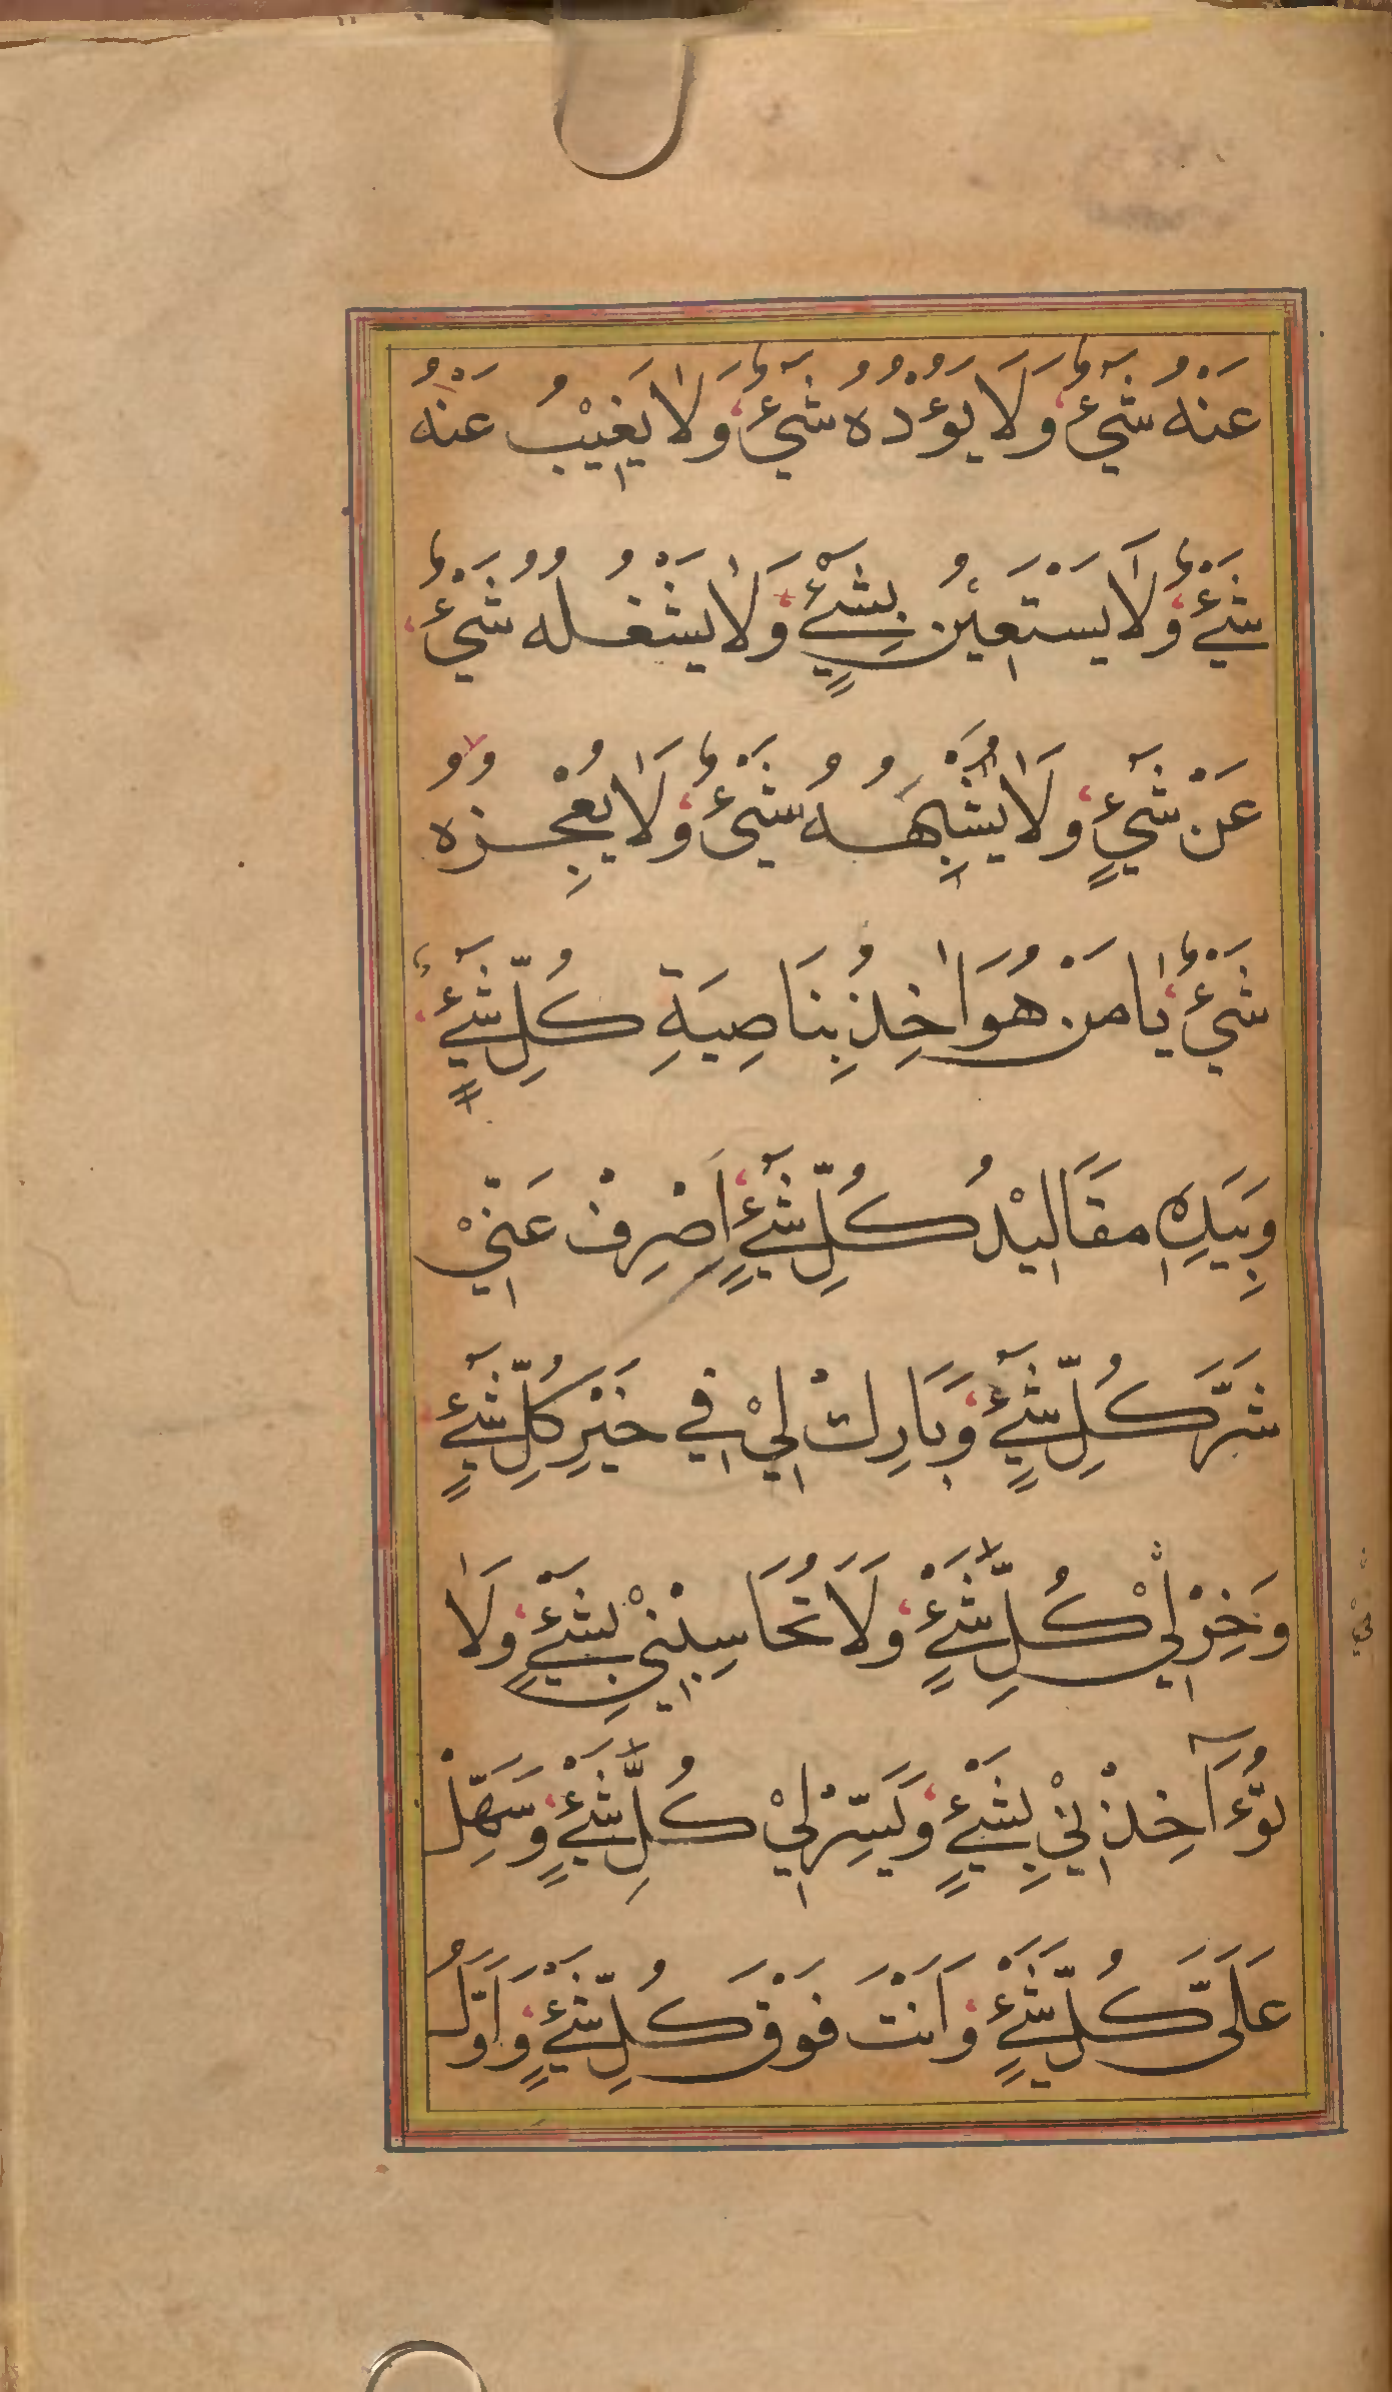 عَنْهُ شَيْءٌ وَلَا يَؤُدُهُ شَيْءٌ وَلَا يَغِيْبُ عَنْهُ
شَيْءٌ وَلَا يَسْتَعِيْنُ بِشَيْءٍ وَلَا يَشْغُلُهُ شَيْءٌ
عَنْ شَيْءٍ وَلَا يُشْبِهُهُ شَيْءٌ وَلَا يُعْجِزُهُ
شَيْءٌ يَا مَنْ هُوَ اٰخِذُ بِنَاصِيَةِ كُلِّ شَيْءٍ
وَبِيَدِهِ مَقَالِيْدُ كُلِّ شَيْءٍ اِصْرِفْ عَنِّيْ
شَرَّ كُلِّ شَيْءٍ وَبَارِكْ لِيْ فِي خَيْرِ كُلِّ شَيْءٍ
وَخِرْ لِيْ كُلِّ شَيْءٍ وَلَا تُحَاسِبْنِيْ بِشَيْءٍ وَلَا
تُؤَآخِذْنِيْ بِشَيْءٍ وَيَسِّرْ لِيْ كُلِّ شَيْءٍ وَسَهِّلْ
عَلَىَّ كُلِّ شَيْءٍ وَاَنْتَ فَوْقَ كُلِّ شَيْءٍ وَاَوَّلُ